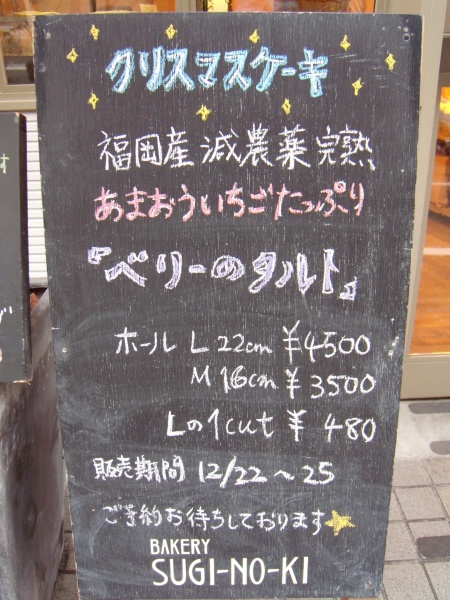 クリスマスケーキ
福岡産減農薬完熟
あまおういちごたっぷり
『ベリーのタルト』
ホール L 22cm ¥4500
M 16cm ¥3500
Lの1cut ¥480
販売期間 12/22〜25
ご予約お待ちしております
BAKERY
SUGI-NO-KI